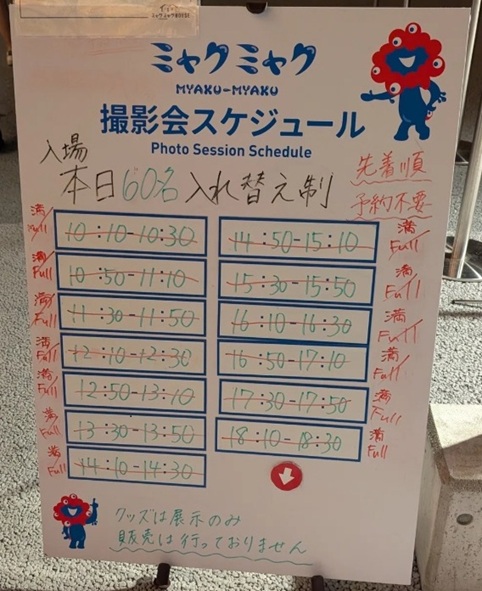 ミャクミャク
MYAKU-MYAKU
撮影会スケジュール
Photo Session Schedule
入場
本日60名入れ替え制
先着順
予約不要
満 Full 10:10-10:30
満 Full 10:50-11:10
満 Full 11:30-11:50
満 Full 12:10-12:30
満 Full 12:50-13:10
満 Full 13:30-13:50
満 Full 14:10-14:30
14:50-15:10 満 Full
15:30-15:50 満 Full
16:10-16:30 満 Full
16:50-17:10 満 Full
17:30-17:50 満 Full
18:10-18:30 満 Full
グッズは展示のみ
販売は行っておりません